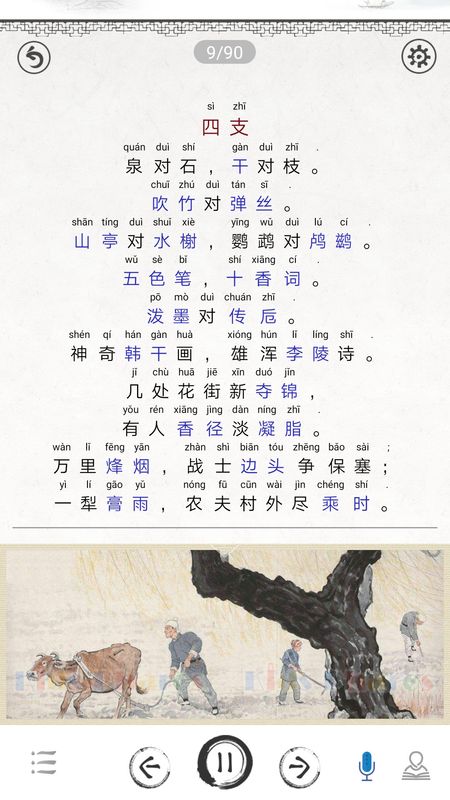 9/90
sì zhī
四支
quán duì shí gàn duì zhī .
泉对石，干对枝。
chuī zhú duì tán sī .
吹竹对弹丝。
shān tíng duì shuǐ xiè yīng wǔ duì lú cí .
山亭对水榭，鹦鹉对鸬鹚。
wǔ sè bǐ shí xiāng cí .
五色笔，十香词。
pō mò duì chuán zhī .
泼墨对传卮。
shén qí hán gàn huà xióng hún lǐ líng shī .
神奇韩干画，雄浑李陵诗。
jǐ chù huā jiē xīn duó jǐn
几处花街新夺锦，
yǒu rén xiāng jìng dàn níng zhī .
有人香径淡凝脂。
wàn lǐ fēng yān zhàn shì biān tóu zhēng bǎo sài ;
万里烽烟，战士边头争保塞；
yì lí gāo yǔ nóng fū cūn wài jìn chéng shí .
一犁膏雨，农夫村外尽乘时。